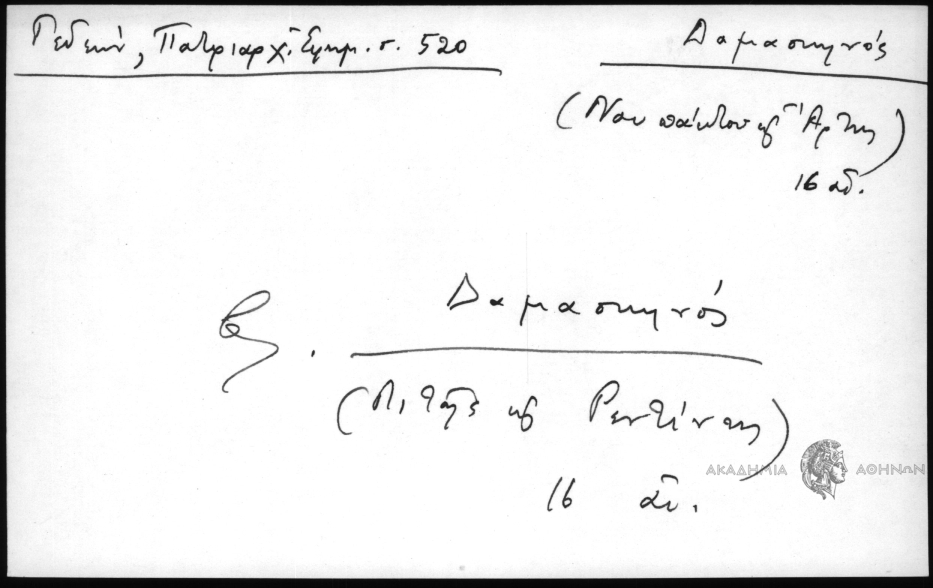 Γεδεών, Πατριαρχ. Εφημ. σ. 520
Δαμασκηνός
(Ναυπάκτου κ̀ Ἄρτης)
16 αἰ.
βλ. Δαμασκηνός
(Λιτζᾶς κ̀ Ρεντίνης)
16 αἰ.
ΑΚΑΔΗΜΙΑ ΑΘΗΝΩΝ